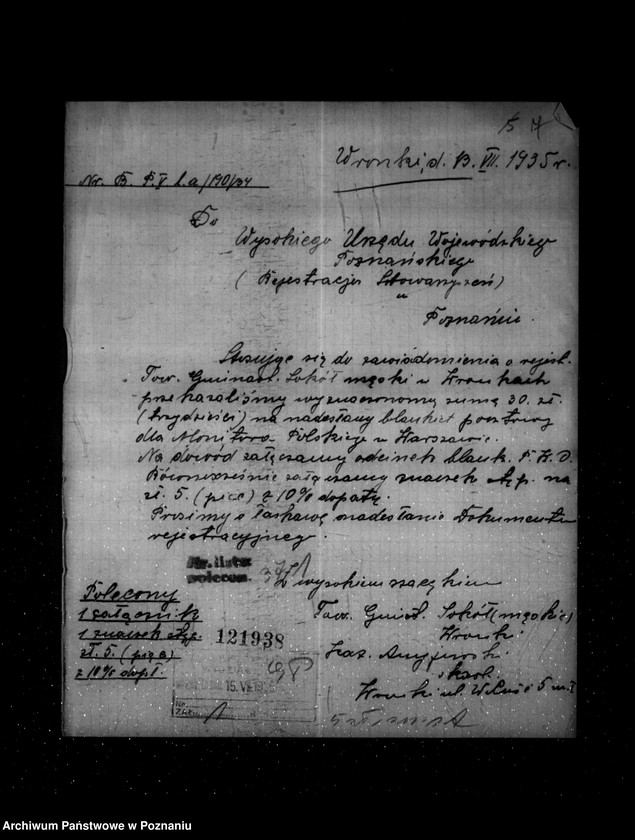 15 17
Wronki, d. 13. VII. 1935 r.
Nr. B. P. V 1. a/190/34
Do
Wysokiego Urzędu Wojewódzkiego
Poznańskiego
(Rejestracja Stowarzyszeń)
w
Poznaniu.
Stosując się do zawiadomienia o rejest.
Tow. Gimnast. Sokół męski w Wronkach
przekazaliśmy wyznaczoną sumę 30. zł.
(trzydzieści) na nadesłany blankiet pocztowy
dla Monitora Polskiego w Warszawie.
Na dowód załączamy odcinek blank. P.K.O.
Równocześnie załączamy znaczek stp. na
zł. 5. (pięć) z 10% dopłatą.
Prosimy o łaskawe nadesłanie Dokumentu
rejestracyjnego.
Nr. listu
polecon.
Z wysokiem szacunkiem
Polecony
1 załącznik
1 znaczek stp.
zł. 5. (pięć)
z 10% dopł.
Tow. Gimnast. Sokół (męskie)
Wronki
121938
Kaz.
sekret.
15. VII.
Wronki ul.
5 zł
Archiwum Państwowe w Poznaniu